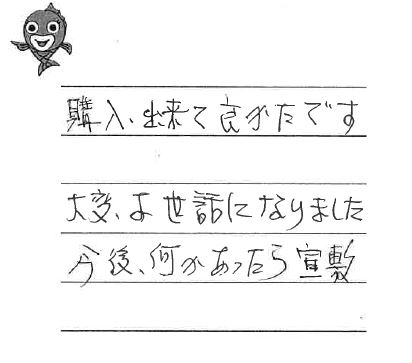 購入、出来て良かたです
大変、お世話になりました
今後、何かあったら宜敷